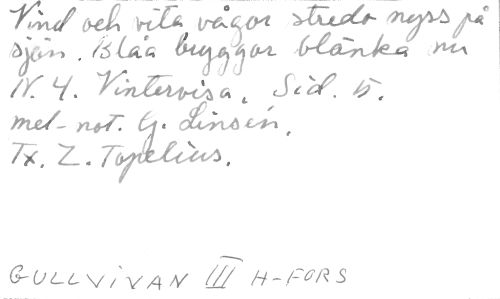 Vind och vita vågor stredo nyss på
sjön. Blåa bryggor blänka nu
N. 4. Vintervisa, Sid. 15.
mel-not. G. Linsén,
Tx. Z. Topelius.
GULLVIVAN III H-FORS